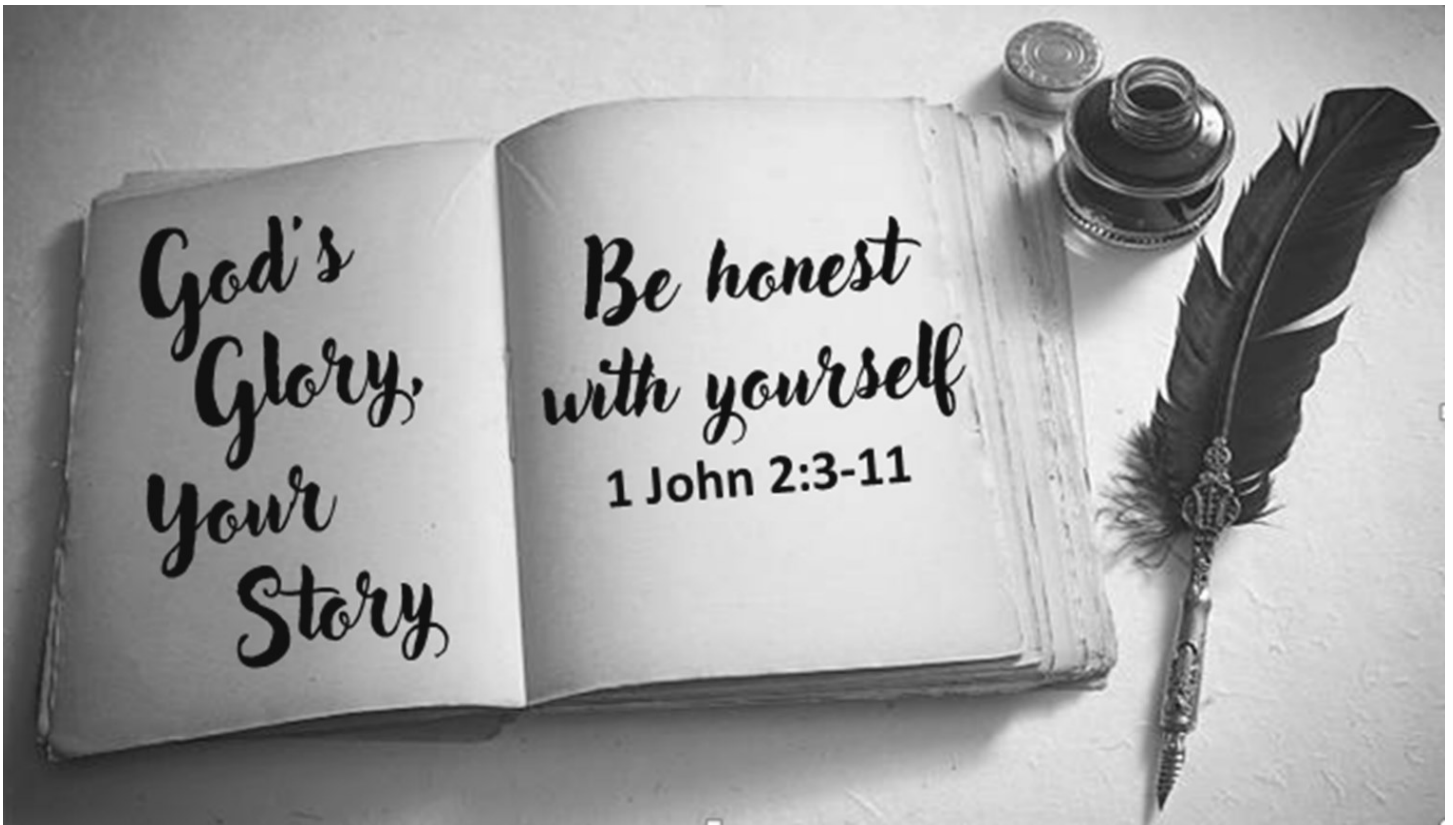 God's
Glory,
Your
Story
Be honest
with yourself
1 John 2:3-11